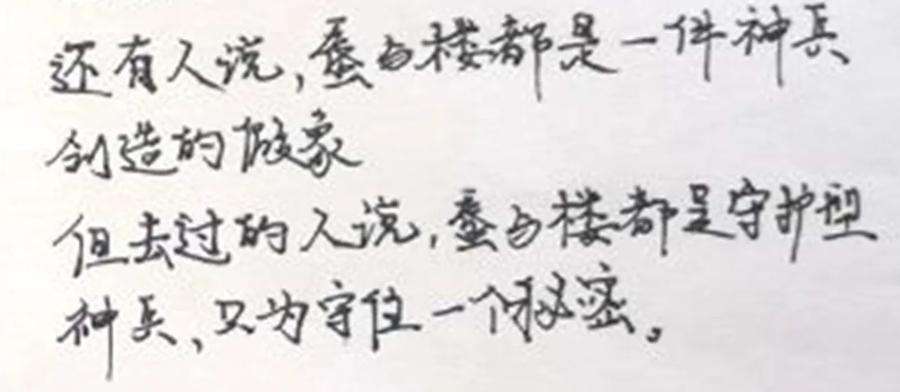 还有人说,蜃与楼都是一件神兵
创造的假象
但去过的人说,蜃与楼都是守护型
神兵、只为守住一个秘密。